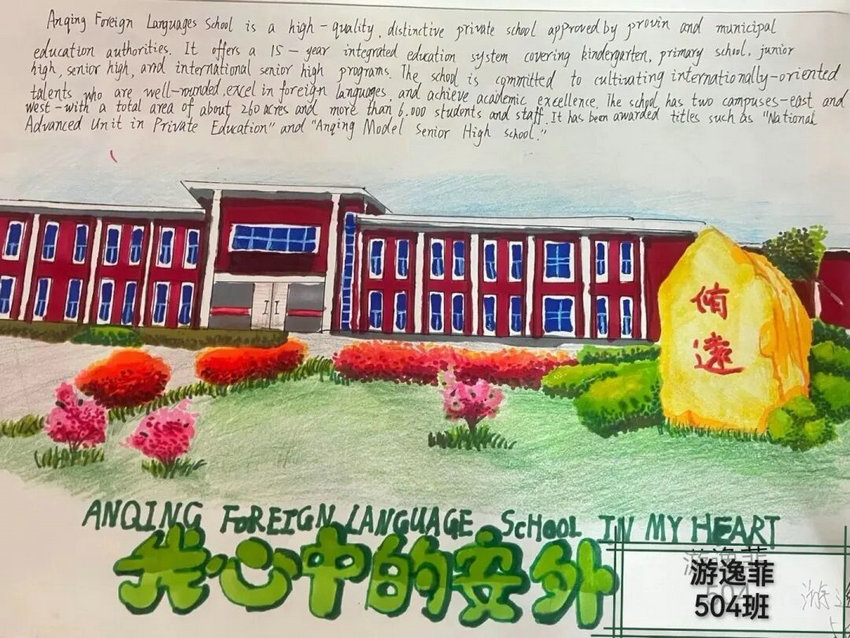 Anqing Foreign Languages School is a high-quality, distinctive private school approved by provin and municipal
education authorities. It offers a 15-year integrated education system covering kindergarten, primary school, junior
high, senior high, and international senior high programs. The school is committed to cultivating internationally-oriented
talents who are well-rounded, excel in foreign languages, and achieve academic excellence. The school has two campuses-east and
west-with a total area of about 260 acres and more than 6.000 students and staff. It has been awarded titles such as "National
Advanced Unit in Private Education" and "Anqing Model Senior High school."
脩
遠
ANQING FOREIGN LANGUAGE ScHOOL IN MY HEART
我心中的安外
游逸菲
504班